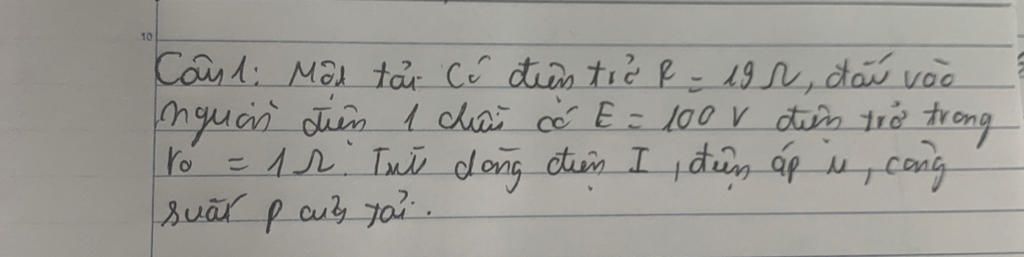 10
Câu 1: Một tải có điện trở R = 19 Ω, đấu vào
nguồn điện 1 chiều có E = 100 V điện trở trong
r0 = 1 Ω. Tính dòng điện I, điện áp u, công
suất p của tải.